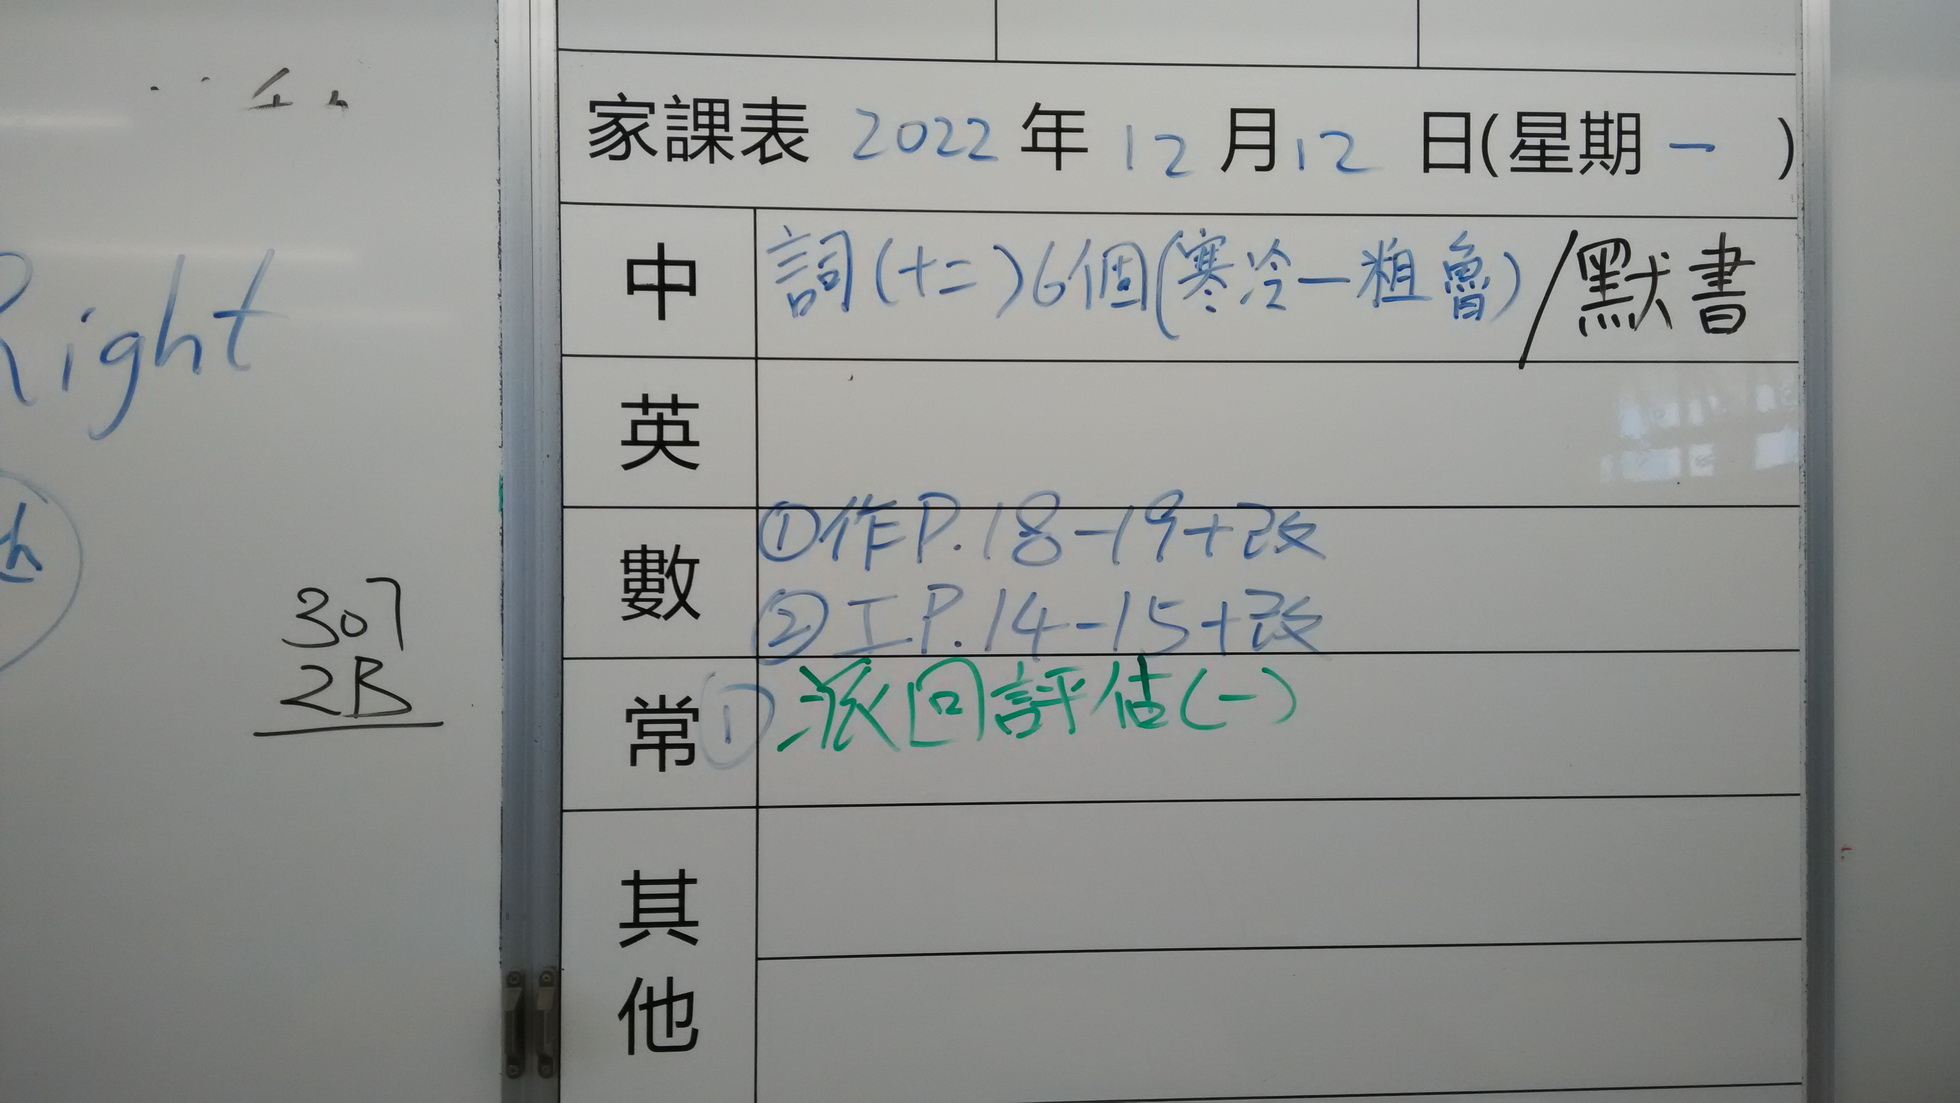 Right
h
307
2B
家課表 2022 年 12 月 12 日(星期 一 )
中 詞(十二)6個(寒冷一粗魯)/默書
英
數 ①作P.18-19+改
②工P.14-15+改
常 ① 派回評估(一)
其他